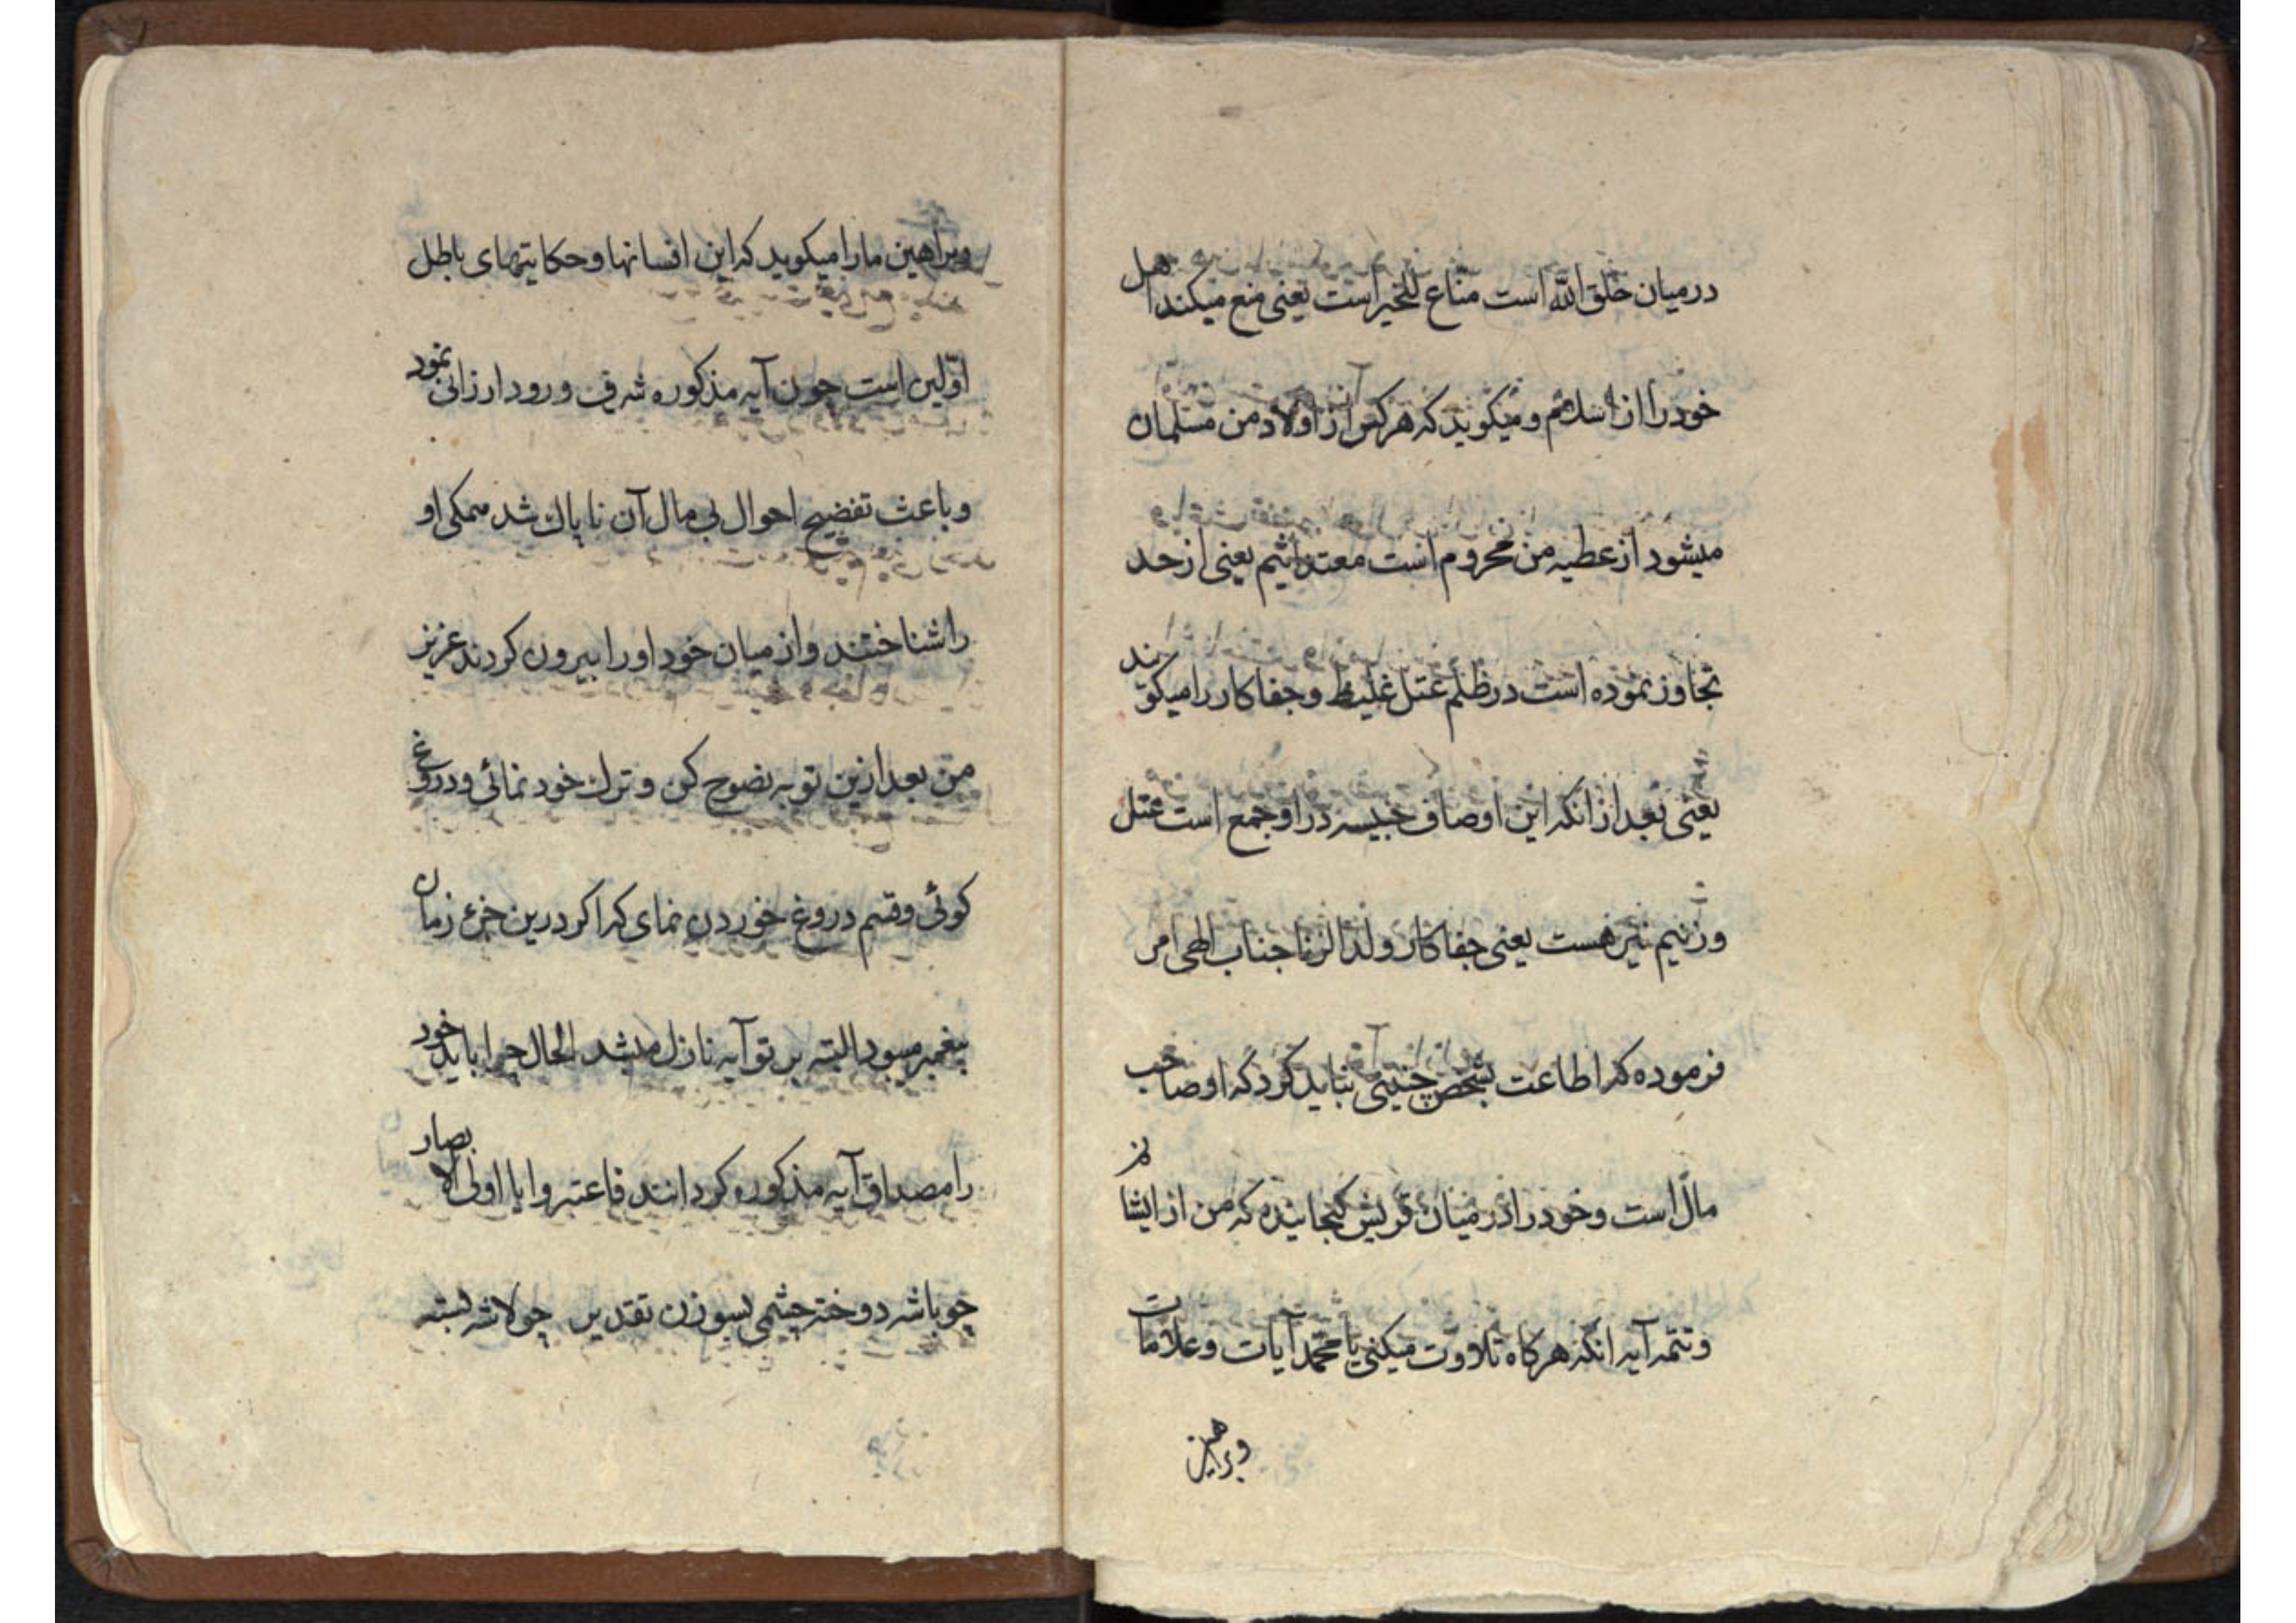 در میان خلق الله است مناع للخیر است یعنی منع میکند اهل
خود را از اسلام و میکوید که هر کس از اولاد من مسلمان
میشود از عطیه من محروم است معتد اثیم یعنی از حد
تجاوز نموده است در ظلم عتل غلیظ و جفاکار را میکویند
یعنی بعد از انکه این اوصاف خبیسه در او جمع است عتل
و زنیم نیز هست یعنی جفاکار ولد الزنا جناب الهی امر
فرموده که اطاعت بشخص چنینی نباید کرد که او صاحب
مال است و خود را در میان قریش کنجانیده که من از ایشانم
و تتمه آیه انکه هرکاه تلاوت میکنی یا محمد آیات و علامات
و براهین
و براهین ما را میکوید که این افسانها و حکایتهای باطل
اولین است چون آیه مذکوره شرف ورود ارزانی نمود
و باعث تفضیح احوال بی مال آن ناپاك شد همکی او
را شناختند و از میان خود او را بیرون کردند عزیز
من بعد ازین توبه نضوح کن و ترك خود نمائی و دروغ
کوئی و قسم دروغ خوردن نمای که اکر درین جزء زمان
پیغمبر میبود البته بر تو آیه نازل میشد الحال چرا باید خود
را مصداق آیه مذکوره کردانند فاعتبروا یا اولی الابصار
چو باشه دوخته چشمی بسوزن تقدیر چو لاشه بسته